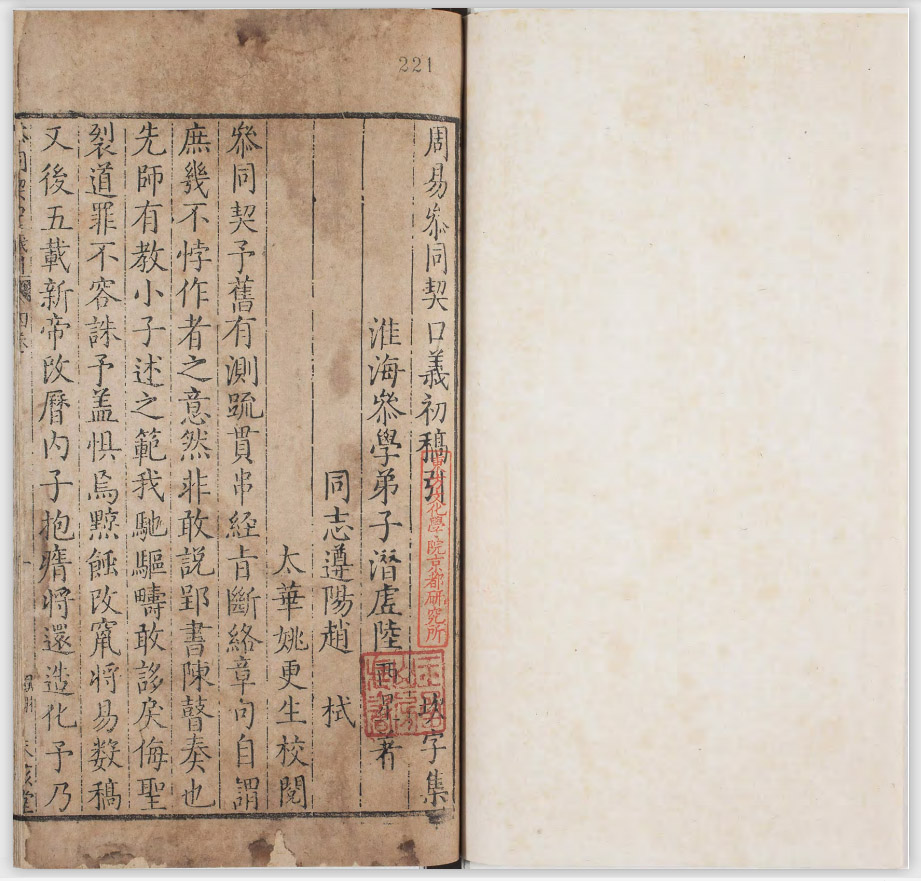 221
周易叅同契口義初稿引 坎字集
淮海叅學弟子潛虛陸西星著
同志遵陽趙 栻
太華姚更生校閱
叅同契予舊有測䟽貫串経㫖斷絡章句自謂
庶幾不悖作者之意然非敢說郢書陳瞽奏也
先師有教小子述之範我馳驅疇敢誃戾侮聖
裂道罪不容誅予盖惧焉㸃蝕改竄將易数稿
又後五載新帝改曆内子抱痟将還造化予乃
東方文化學院京都研究所